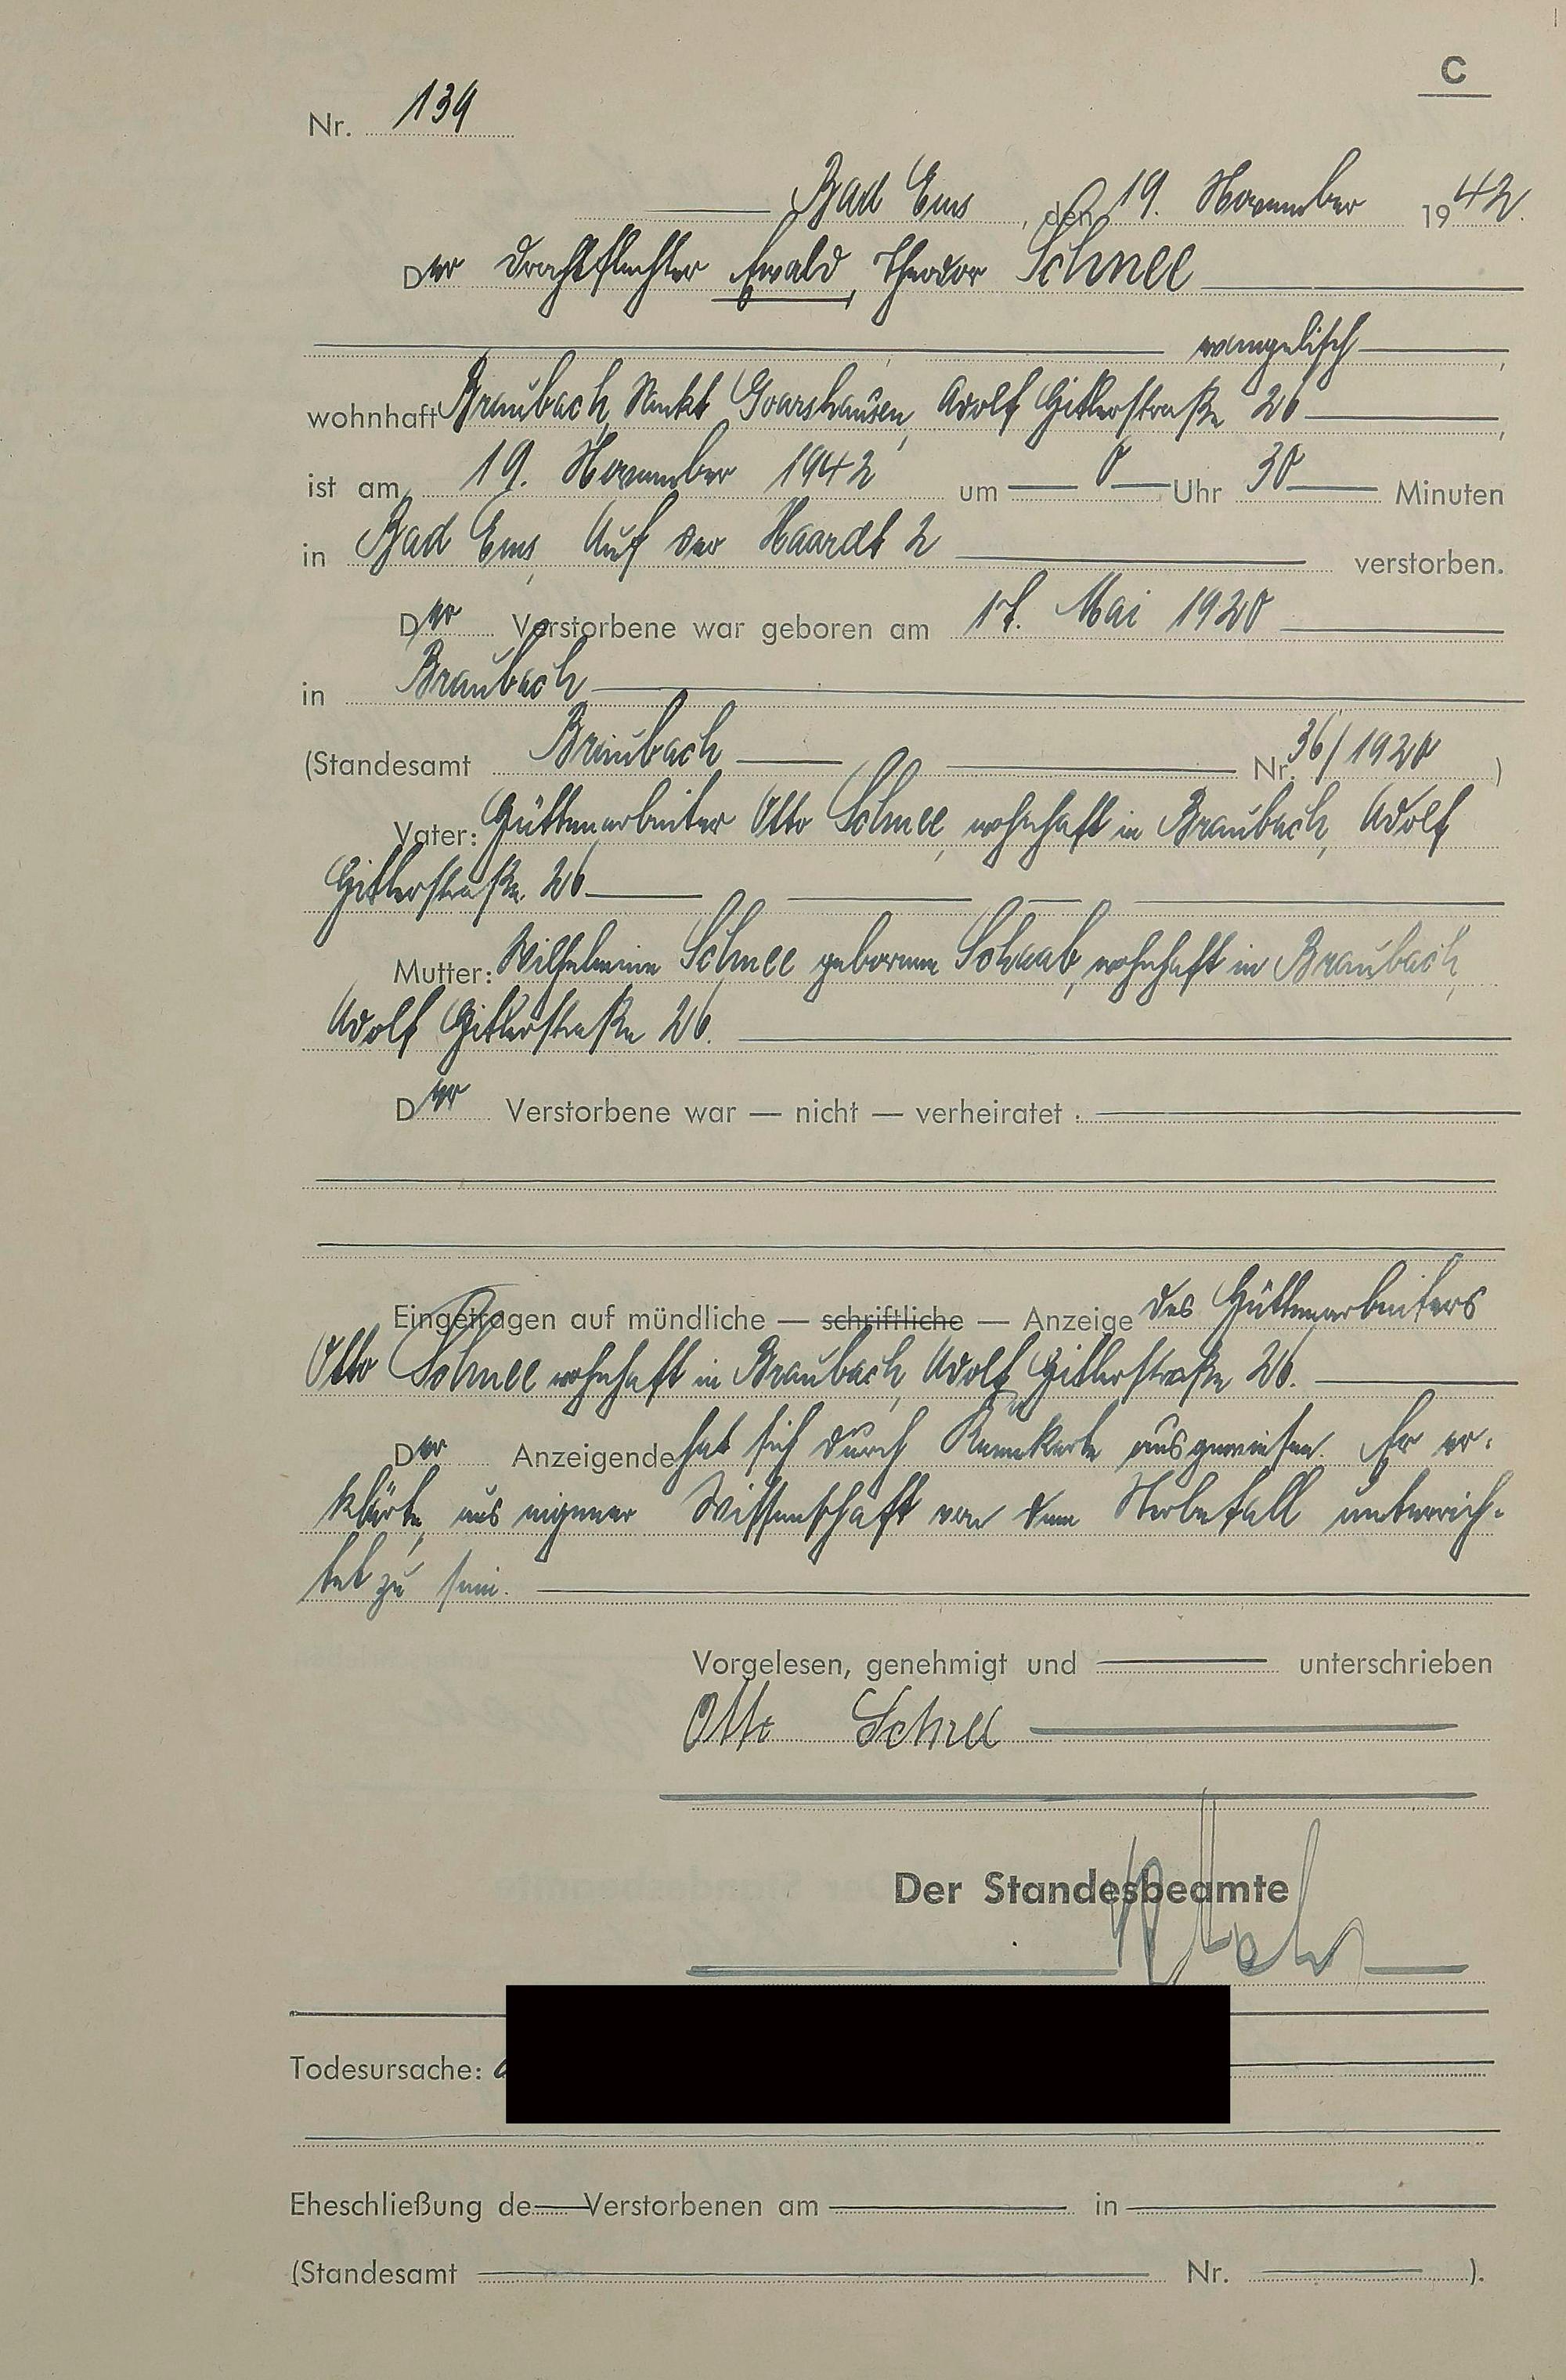 C
Nr. 139
Bad Ems, den 19. November 1942.
Der Drahtflechter Ewald, Theodor Schnee
evangelisch,
wohnhaft Braubach, Sankt Goarshausen, Adolf Hitlerstraße 26,
ist am 19. November 1942 um 0 Uhr 30 Minuten
in Bad Ems, Auf der Haardt 2 verstorben.
Der Verstorbene war geboren am Mai 1920
in Braubach
(Standesamt Braubach Nr. 36/1920)
Vater: Hüttenarbeiter Otto Schnee, wohnhaft in Braubach, Adolf
Hitlerstraße 26
Mutter: Wilhelmine Schnee geborene Schaab, wohnhaft in Braubach,
Adolf Hitlerstraße 26.
Der Verstorbene war — nicht — verheiratet.
Eingetragen auf mündliche — schriftliche — Anzeige des Hüttenarbeiters
Otto Schnee wohnhaft in Braubach, Adolf Hitlerstraße 26.
Der Anzeigende hat sich durch Kennkarte ausgewiesen. Er er-
klärte, aus eigener Wissenschaft von dem Sterbefall unterrich-
tet zu sein.
Vorgelesen, genehmigt und unterschrieben
Otto Schnee
Der Standesbeamte
Todesursache:
Eheschließung de Verstorbenen am in
(Standesamt Nr. ).